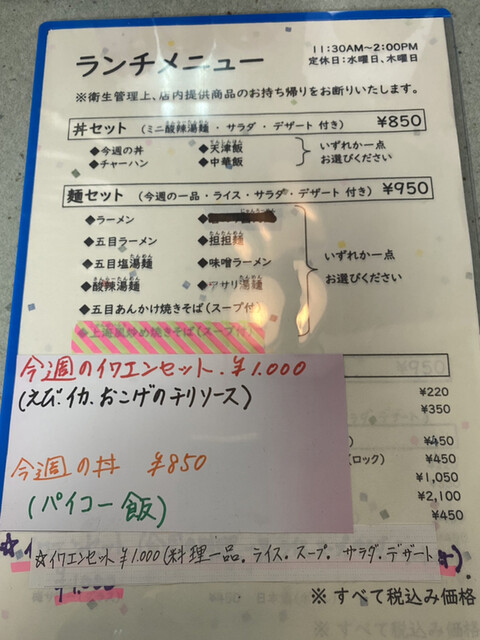 ランチメニュー
11:30AM～2:00PM
定休日:水曜日、木曜日
※衛生管理上、店内提供商品のお持ち帰りをお断りいたします。
丼セット (ミニ酸辣湯麺・サラダ・デザート 付き) ¥850
◆今週の丼 ◆天津飯
◆チャーハン ◆中華飯
いずれか一点
お選びください
麺セット (今週の一品・ライス・サラダ・デザート 付き) ¥950
◆ラーメン
◆五目ラーメン ◆担担麺
◆五目塩湯麺 ◆味噌ラーメン
◆酸辣湯麺 ◆アサリ湯麺
◆五目あんかけ焼きそば(スープ付)
◆上海風炒め焼きそば(スープ付)
いずれか一点
お選びください
¥950
今週のイワエンセット.¥1.000
(えび.イカ.おこげのチリソース)
今週の丼 ¥850
(パイコー飯)
デザート)
¥220
¥350
¥450
(ロック) ¥450
¥1,050
¥2,100
¥450
☆イワエンセット¥1.000(料理一品。ライス。スープ。サラダ。デザート
※すべて税込み価格